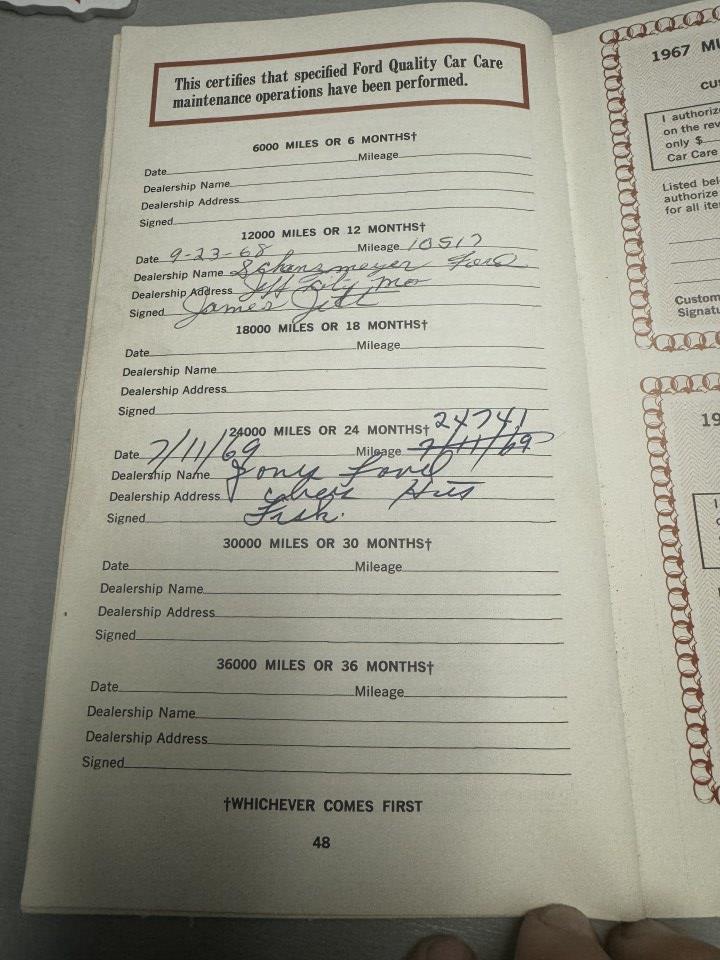 This certifies that specified Ford Quality Car Care
maintenance operations have been performed.
6000 MILES OR 6 MONTHS†
Date Mileage
Dealership Name
Dealership Address
Signed
12000 MILES OR 12 MONTHS†
Date 9-23-68 Mileage 10517
Dealership Name Schanzmeyer Ford
Dealership Address Jeff City Mo
Signed James
18000 MILES OR 18 MONTHS†
Date Mileage
Dealership Name
Dealership Address
Signed
24741
24000 MILES OR 24 MONTHS†
Date 7/11/69 Mileage 7/11/69
Dealership Name Pony Ford
Dealership Address Hts
Signed Fisk.
30000 MILES OR 30 MONTHS†
Date Mileage
Dealership Name
Dealership Address
Signed
36000 MILES OR 36 MONTHS†
Date Mileage
Dealership Name
Dealership Address
Signed
†WHICHEVER COMES FIRST
48
1967 MU
CUS
I authorize
on the rev
only $
Car Care
Listed bel
authorize
for all ite
Custom
Signatu
19
I